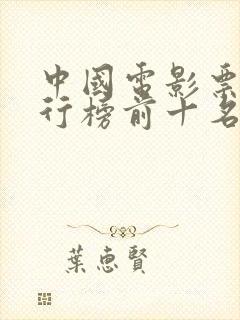 中國電影票
行榜前十名
葉惠賢